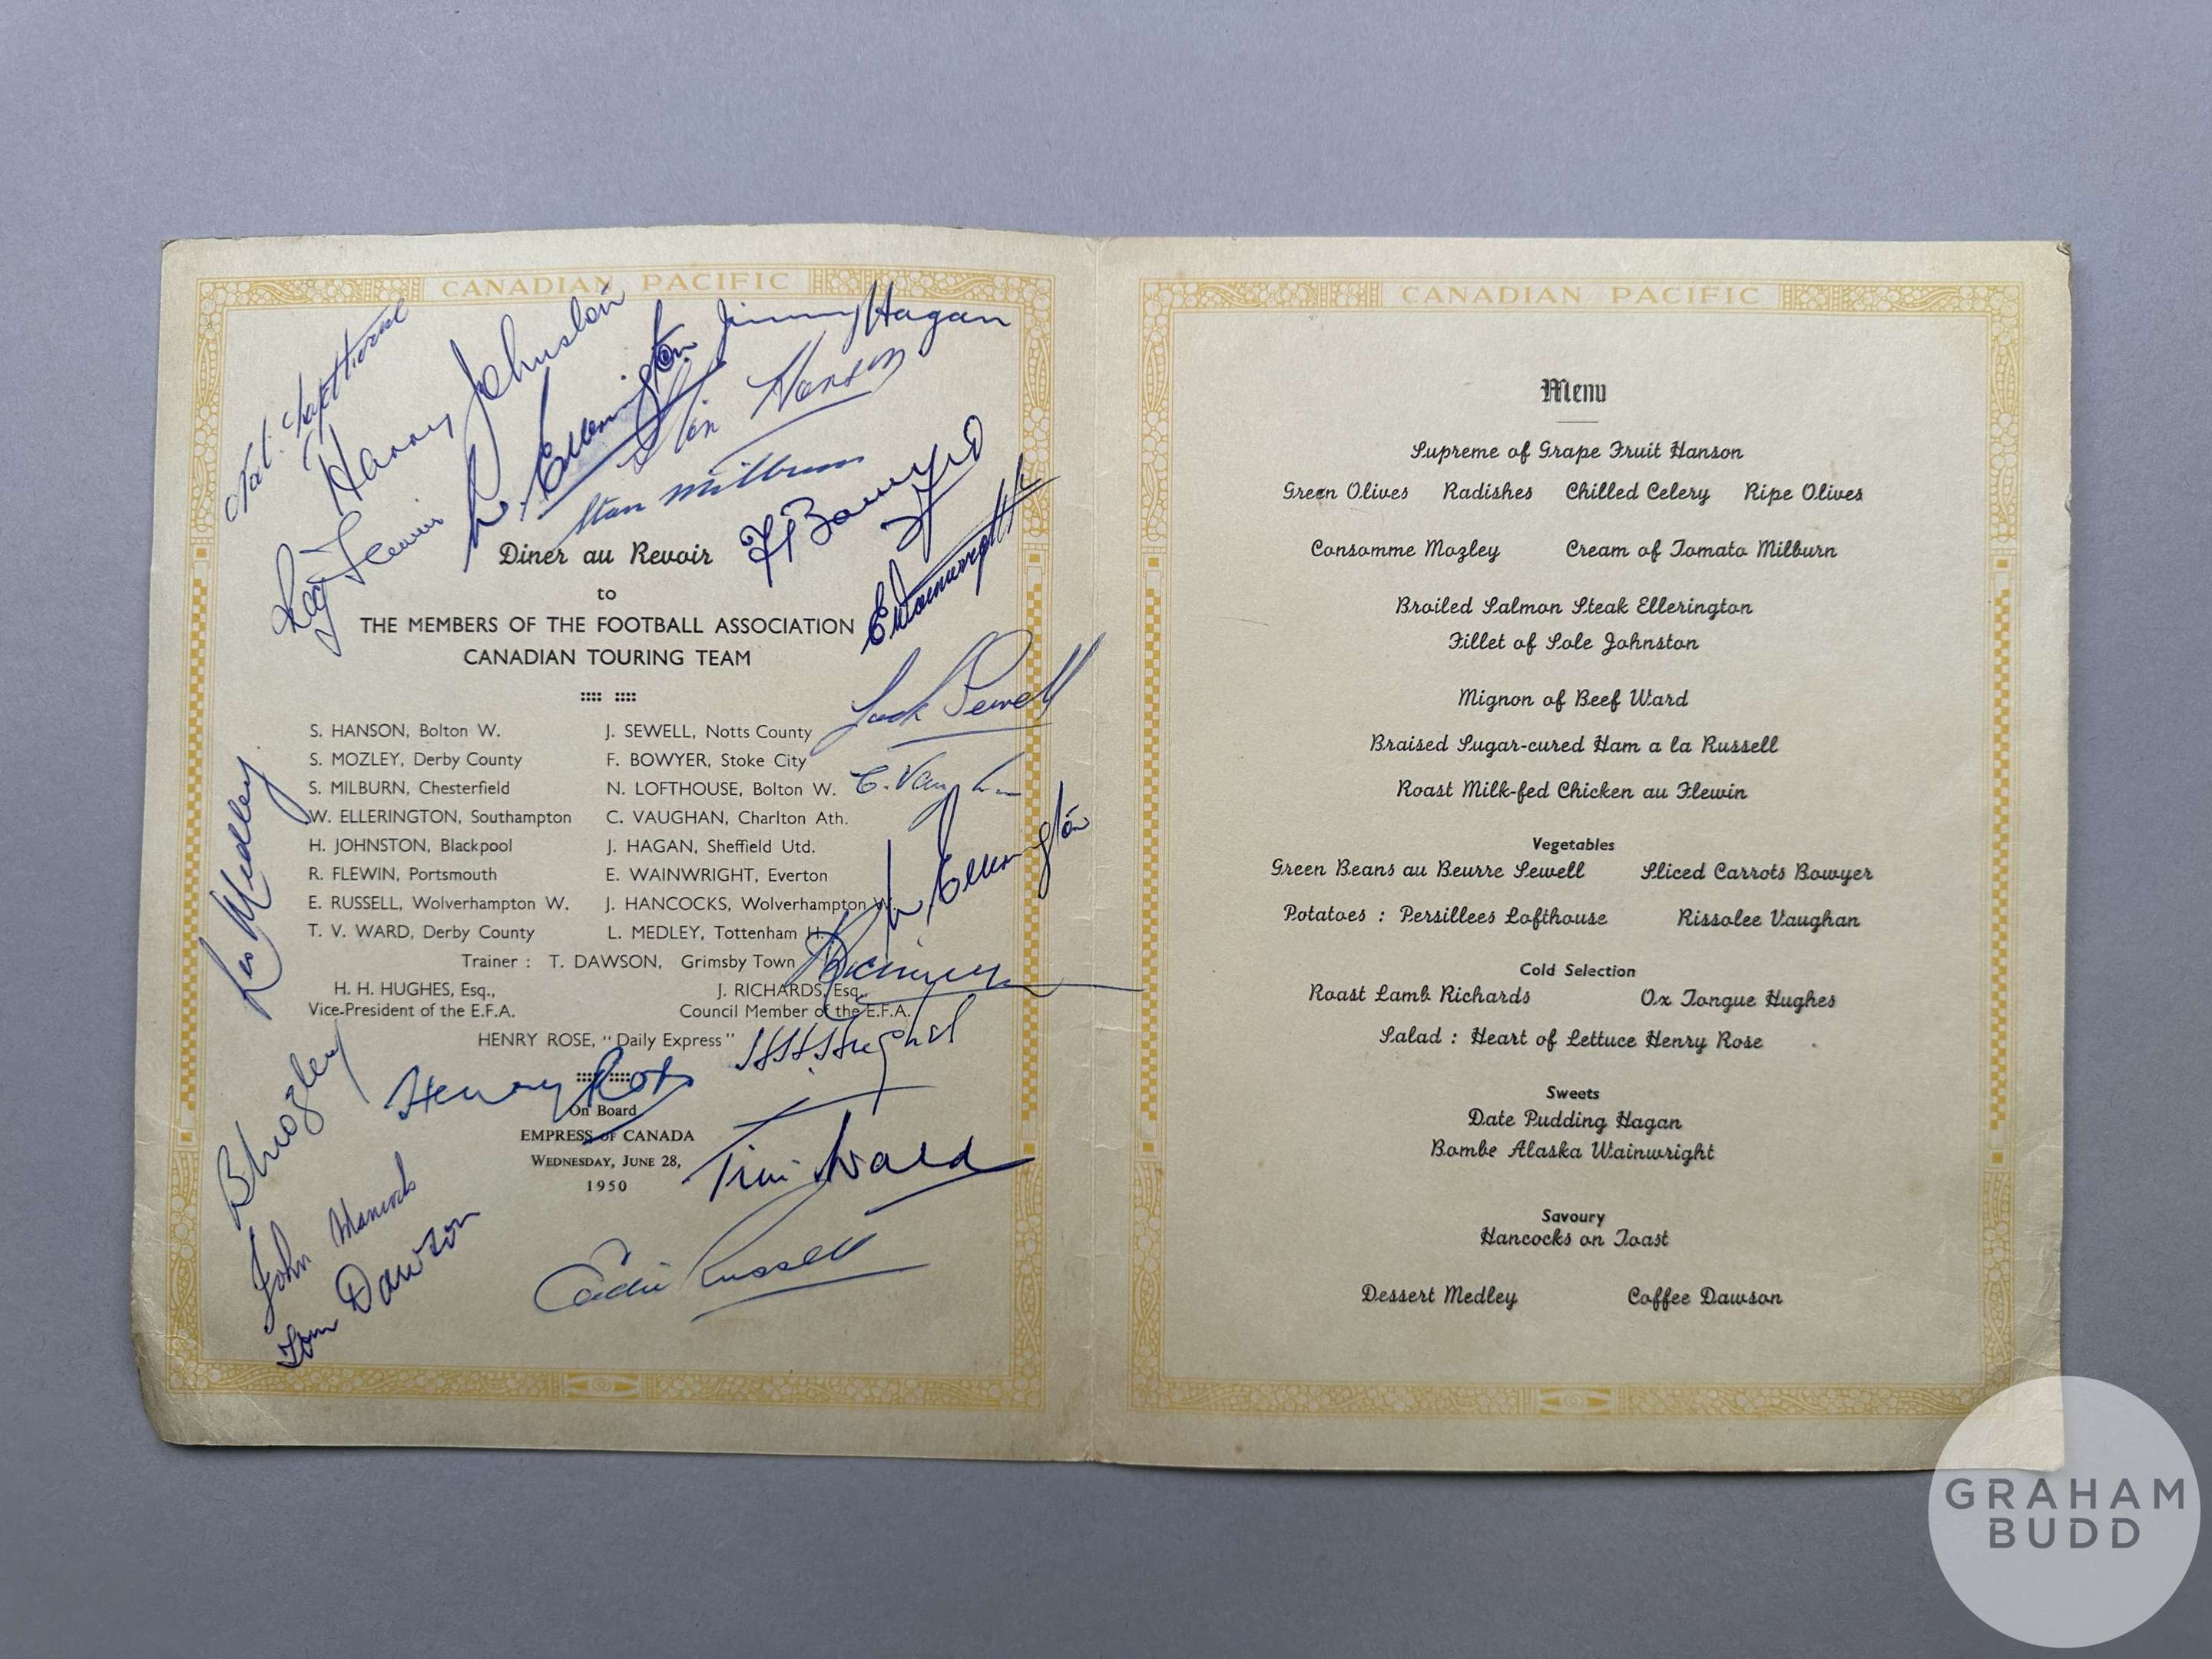 CANADIAN PACIFIC
Nat. Lofthouse
Harry Johnston
W. Ellerington
Jimmy Hagan
Stan Hanson
Stan Milburn
F Bowyer
Reg Flewin
E Wainwright
Diner au Revoir
to
THE MEMBERS OF THE FOOTBALL ASSOCIATION
CANADIAN TOURING TEAM
Jack Sewell
S. HANSON, Bolton W.
S. MOZLEY, Derby County
S. MILBURN, Chesterfield
W. ELLERINGTON, Southampton
H. JOHNSTON, Blackpool
R. FLEWIN, Portsmouth
E. RUSSELL, Wolverhampton W.
T. V. WARD, Derby County
J. SEWELL, Notts County
F. BOWYER, Stoke City
N. LOFTHOUSE, Bolton W.
C. VAUGHAN, Charlton Ath.
J. HAGAN, Sheffield Utd.
E. WAINWRIGHT, Everton
J. HANCOCKS, Wolverhampton W.
L. MEDLEY, Tottenham H.
C. Vaughan
W Ellerington
Les Medley
Trainer : T. DAWSON, Grimsby Town
H. H. HUGHES, Esq.,
Vice-President of the E.F.A.
J. RICHARDS, Esq.,
Council Member of the E.F.A.
HENRY ROSE, "Daily Express"
H.H. Hughes
Henry Rose
B Mozley
On Board
EMPRESS OF CANADA
WEDNESDAY, JUNE 28,
1950
Tim Ward
John Hancocks
Tom Dawson
Eddie Russell
CANADIAN PACIFIC
Menu
Supreme of Grape Fruit Hanson
Green Olives Radishes Chilled Celery Ripe Olives
Consomme Mozley Cream of Tomato Milburn
Broiled Salmon Steak Ellerington
Fillet of Sole Johnston
Mignon of Beef Ward
Braised Sugar-cured Ham a la Russell
Roast Milk-fed Chicken au Flewin
Vegetables
Green Beans au Beurre Sewell Sliced Carrots Bowyer
Potatoes : Persillees Lofthouse Rissolee Vaughan
Cold Selection
Roast Lamb Richards Ox Tongue Hughes
Salad : Heart of Lettuce Henry Rose
Sweets
Date Pudding Hagan
Bombe Alaska Wainwright
Savoury
Hancocks on Toast
Dessert Medley Coffee Dawson
GRAHAM
BUDD